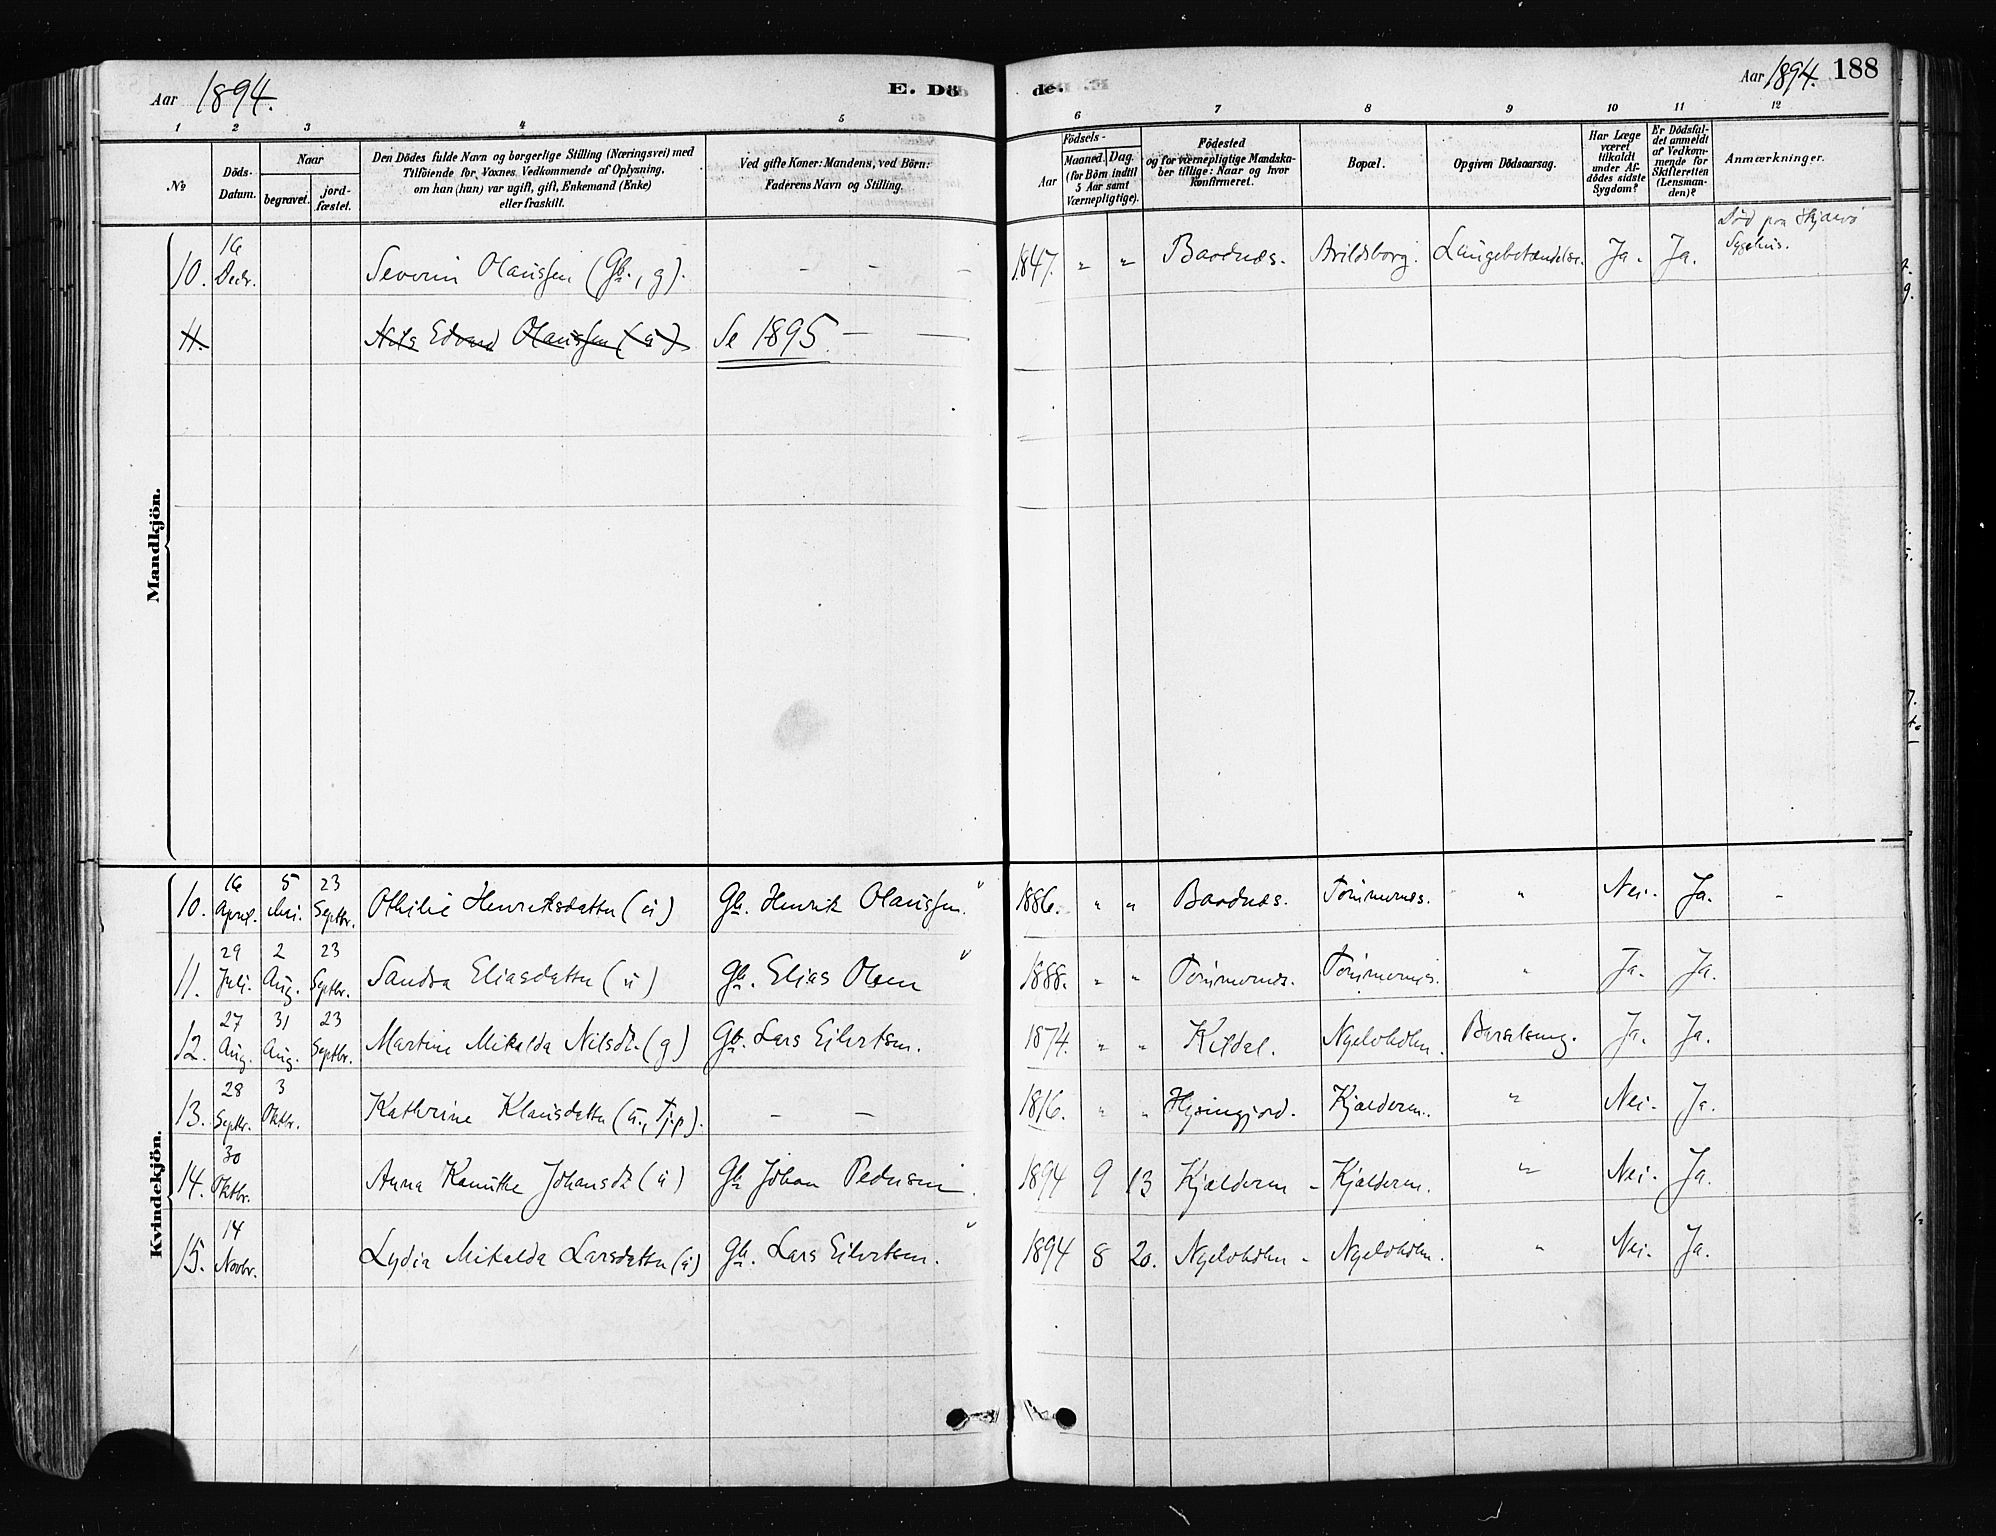 Aar 1894. E. Dö
de. Aar 1894. 188
1 2 3 4 5 6 7 8 9 10 11 12
No
Döds-
Datum.
Naar
begravet.
jord-
fæstet.
Den Dödes fulde Navn og borgerlige Stilling (Næringsvei) med
Tilföiende for Voxnes Vedkommende af Oplysning,
om han (hun) var ugift, gift, Enkemand (Enke)
eller fraskilt.
Ved gifte Koner: Mandens, ved Börn:
Faderens Navn og Stilling.
Födsels-
Aar
Maaned. Dag.
(for Börn indtil
5 Aar samt
Værnepligtige).
Födested
og for værnepligtige Mandska-
ber tillige: Naar og hvor
Konfirmeret.
Bopæl.
Opgiven Dödsaarsag.
Har Læge
været
tilkaldt
under Af-
dödes sidste
Sygdom?
Er Dödsfal-
det anmeldt
af Vedkom-
mende for
Skifteretten
(Lensman-
den)?
Anmærkninger.
Mandkjön.
10. 16 Decbr. Severin Olaussen (Gb., g). - - - - 1847. " " Bardnæs. Arildsborg. Lungebetændelse. Ja. Ja. Död paa Skjærvö Sygehus.
11. Nils Edvard Olaussen (u) Se 1895 — —
Kvindekjön.
10. 16 April. 5 Mai. 23 Septbr. Othilie Henriksdatter (u) Gb. Henrik Olaussen. " 1886. " " Bardnæs. Tømmernes. " Nei. Ja. -
11. 29 Juli. 2 Aug. 23 Septbr. Sandra Eliasdatter (u) Gb. Elias Olsen " 1888. " " Tømmernes. Tømmernes. " Ja. Ja.
12. 27 Aug. 31 Aug. 23 Septbr. Martine Mikalda Nilsdt. (g) Gb. Lars Eilertsen. 1874. " " Kildal. Barselseng. Ja. Ja.
13. 28 Septbr. 3 Oktbr. Kathrine Klausdatter (u., Tj.p). — — 1816. " " Kjælderen. " Nei. Ja.
14. 30 Oktbr. Anna Kamitte Johansdt. (u) Gb. Johan Pedersen. 1894 9 13 Kjælderen - Kjælderen. " Nei. Ja.
15. 14 Novbr. Lydia Mikalda Larsdatter (u) Gb. Lars Eilertsen. " 1894 8 20. " Nei. Ja.